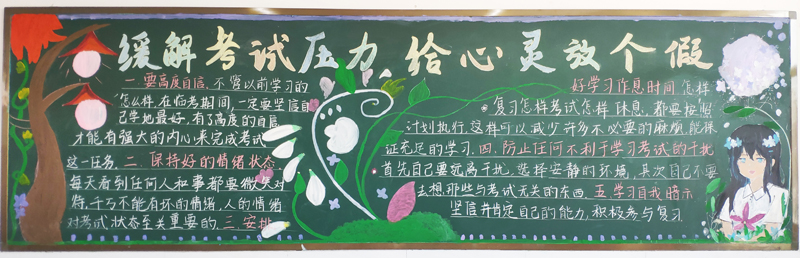 缓解考试压力,给心灵放个假
一.要高度自信.不管以前学习的
怎么样.在临考期间.一定要坚信自
己学地最好.有3高度的自信
才能有强大的内心来完成考试
这一任务.二.保持好的情绪状态
每天看到任何人和事都要微笑对
待,千万不能有坏的情绪.人的情绪
对考试状态至关重要的.三.安排
好学习作息时间.怎样
复习怎样考试怎样休息.都要按照
计划执行.这样可以减少许多不必要的麻烦.能保
证充足的学习.四.防止任何不利于学习考试的干扰
首先自己要远离干扰,选择安静的环境,其次自己不要
去想那些与考试无关的东西.五.学习自我暗示
坚信并肯定自己的能力.积极参与复习